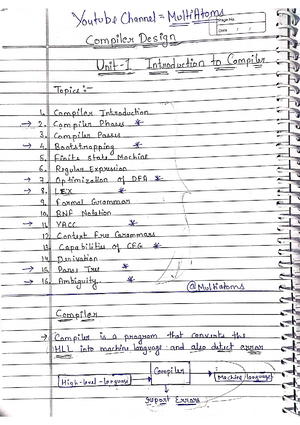 Youtube Channel = MultiAtoms
Page No.
Date
Compiler Design
Unit-1 Introduction to Compiler
Topics :-
1. Compiler Introduction
→ 2. Compiler Phases *
3. Compiler Passes
→ 4. Bootstrapping *
5. Finite State Machine
6. Regular Expression
→ 7. Optimization of DFA *
→ 8. LEX *
9. Formal Grammar
10. BNF Notation
→ 11. YACC *
12. Context Free Grammars
13. Capabilities of CFG *
14. Derivation
→ 15. Parse Tree *
→ 16. Ambiguity *
@Multiatoms
Compiler
→ Compiler is a program that converts the
HLL into machine language and also detect error
High-level-language → Compiler → Machine language
↓
report Errors